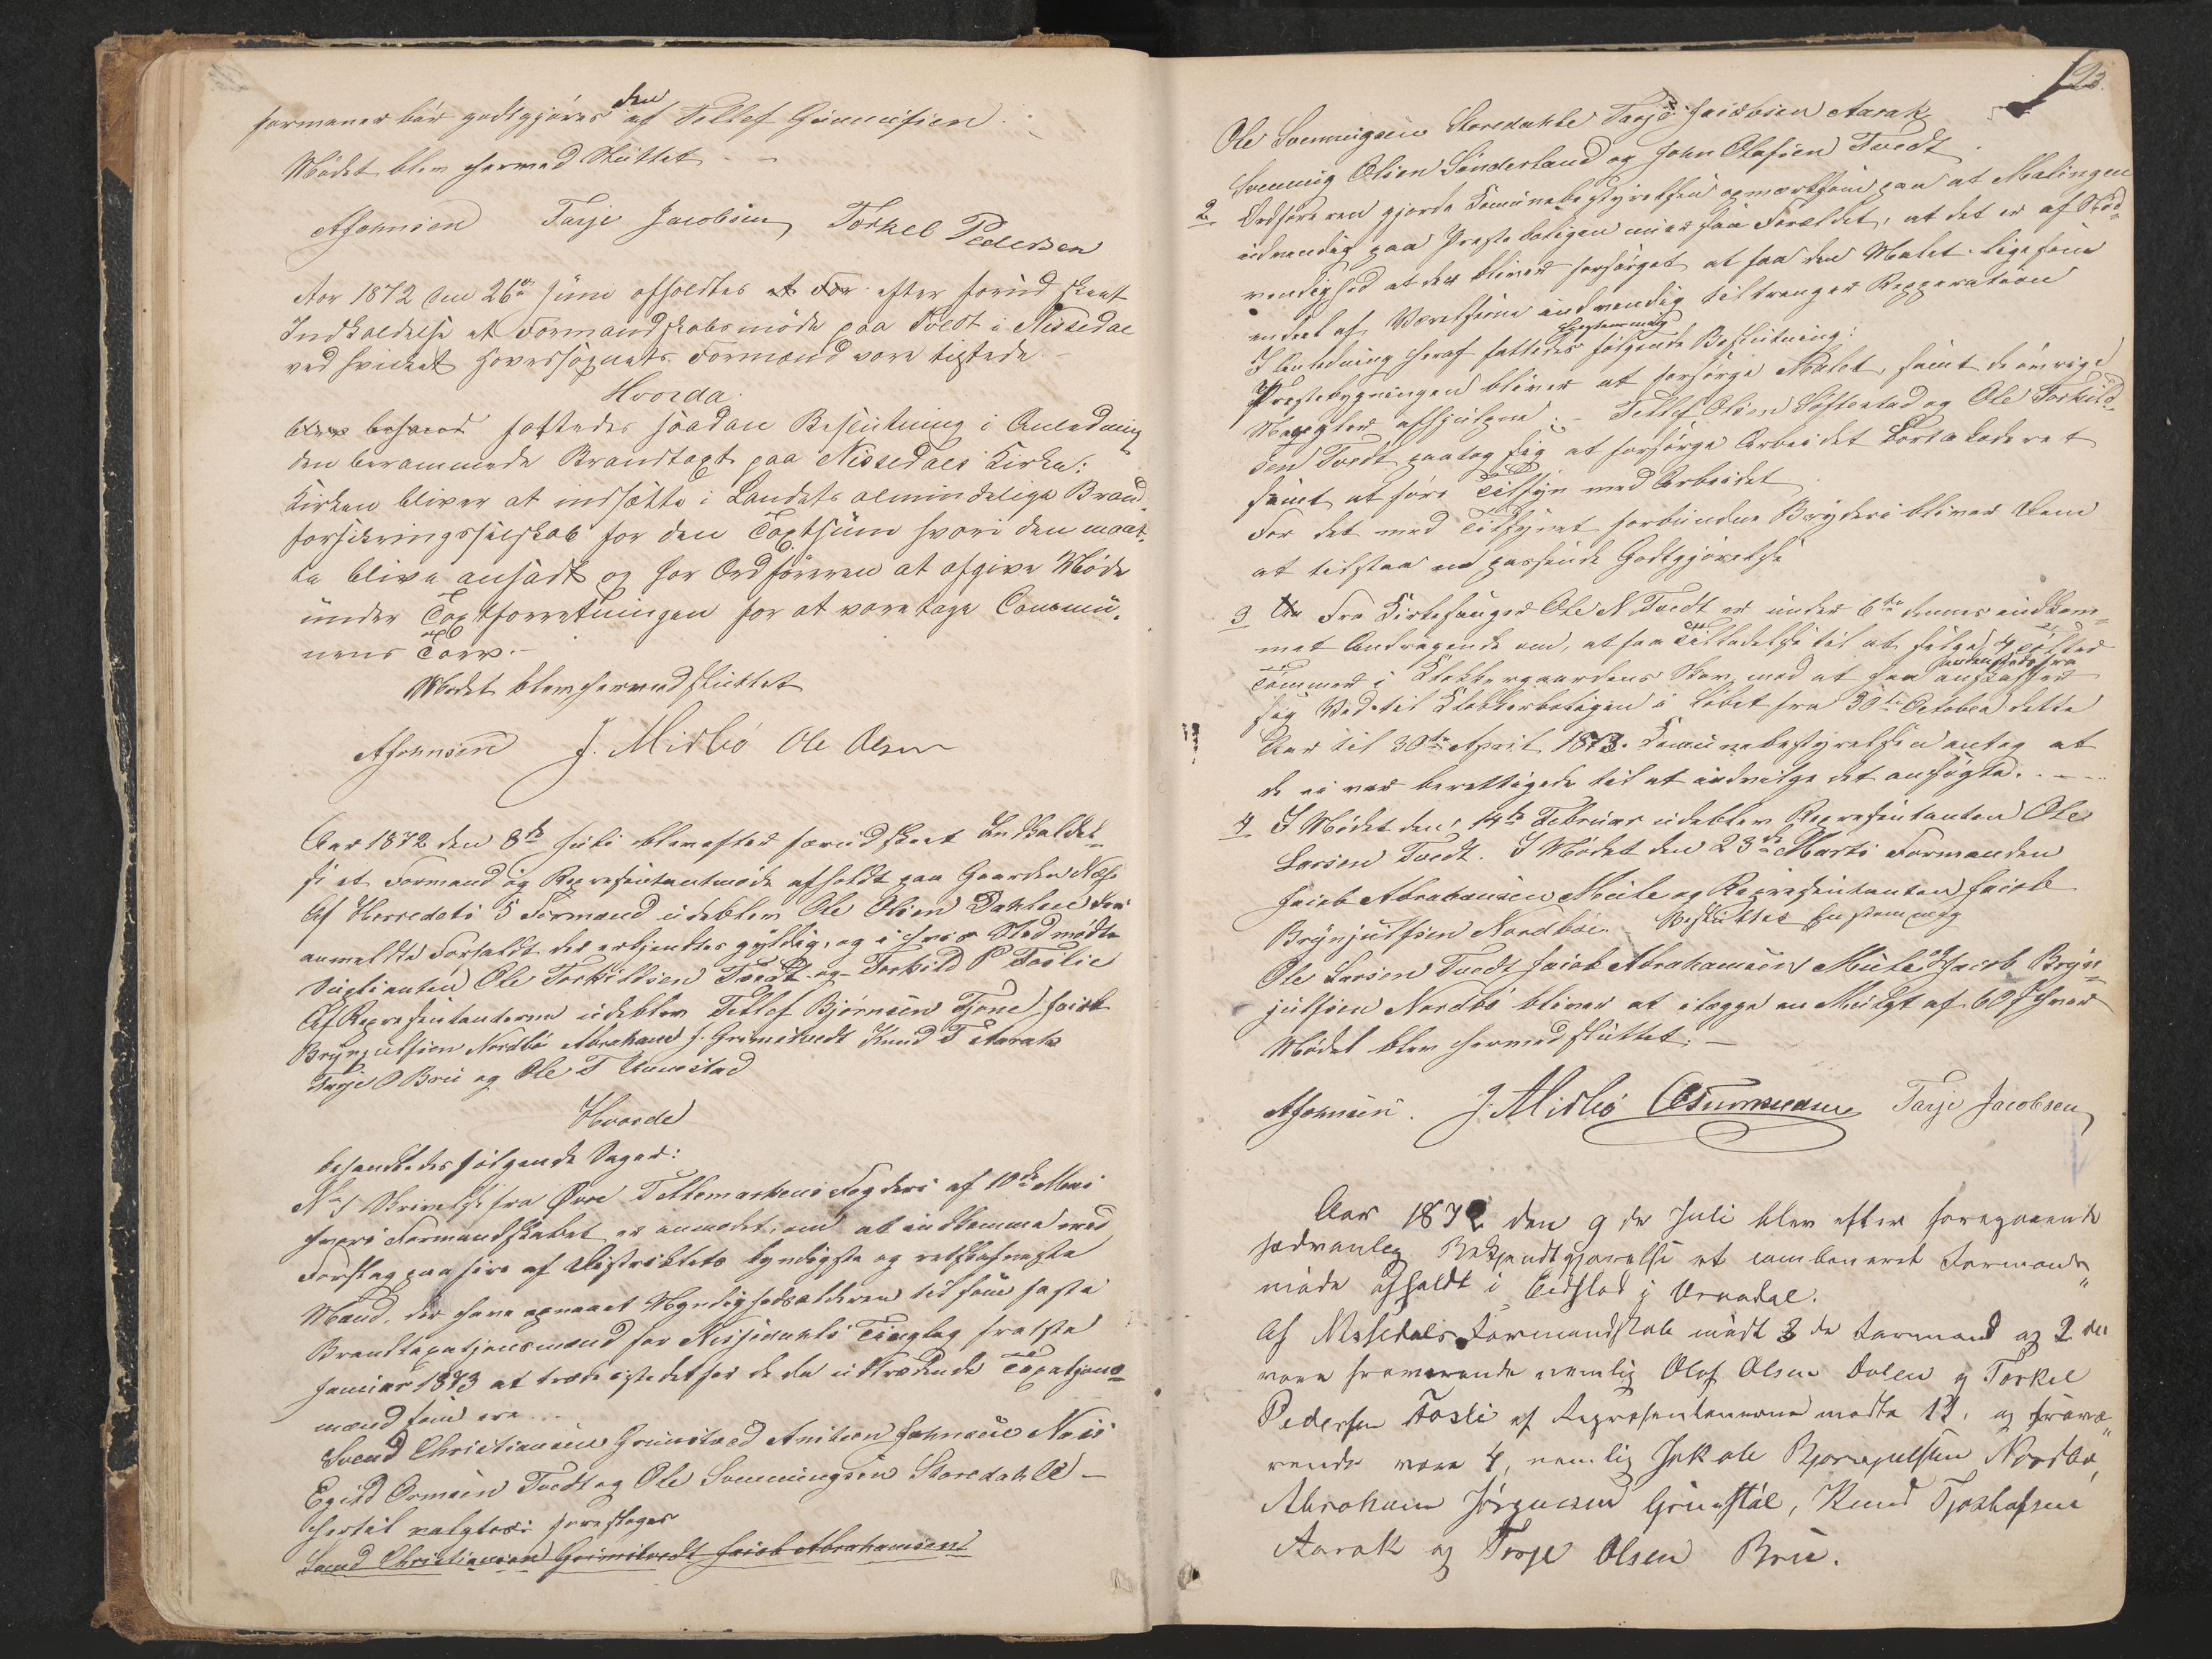 formæner bør godtgjøres den af Tellef Gunnufsen.
Mødet blev hermed sluttet.
AJohnsen Tarje Jacobsen Torkel Pedersen
Aar 1872 den 26de Juni afholdtes efter forud skeet
Indkaldelse et Formandskabsmøde paa Tvedt i Nissedal
ved hvilket Hovedsognets Formænd vare tilstede.
Hvorda
blev fattedes saadan Beslutning i Anledning
den berammede Brandtaxt paa Nissedals Kirke:
Kirken bliver at indsætte i Landets almindelige Brand-
forsikringsselskab for den Taxtsum hvori den maat-
te blive ansadt og har Ordføreren at afgive Møde
under Taxtforretningen for at varetage Commu-
nens Tarv.-
Mødet blev hermed sluttet
AJohnsen J. Midbö Ole Olsen
Aar 1872 den 8de Juli blev efter forud skeet Indkaldel-
se et Formand og Repræsentantmøde afholdt paa Gaarden Næs
Af Herredets 5 Formænd udeblev Ole Olsen Dahlen
anmeldte Forfaldt der erkjendtes gyldig, og i hvis Sted mødte
Suplianten Ole Torkildsen Tvedt og Torkild P Foslie
Af Repræsentanterne udeblev Tellef Bjørnsen Tjone Jacob
Brynjulfsen Nordbø Abraham J. Grimstvedt Knud T Aarak
Tarje O Bru og Ole T Naustad
Hvorde
behandledes følgende Sager:
No 1 Skrivelse fra Øvre Tellemarkens Fogderi af 10de Mai
hvori Formandskabet er anmodet om at indkomme med
Forslag paa fire af Distriktets kyndigste og retskafneste
Mænd, der have opnaaet Myndighedsalderen til som faste
Brandtaxatjonsmænd for Nissedahls Tinglag fra 1ste
Januar 1873 at træde istedetfor de da udtrædende Taxatjons-
mænd som ere
Svend Christiansen Grimstved Anton Johnsen Næss
Egild Ormsen Tvedt og Ole Svenningsen Storedahle -
hertil valgtes: foreslages
Svend Christiansen Grimstvedt Jacob Abrahamsen
23.
Ole Svenningsen Storedahle Tarje Jacobsen Aarak
Svennung Olsen Sønderland og John Olafsen Tvedt
2 Ordføreren gjorde Comunebestyrelsen opmærksom paa at Malingen
indvendig paa Presteboligen nu er saa Forældet, at det er af Nød-
vendighed at der bliver forsørget at faa den Malet ligesom
endeel af Værelserne indvendig tiltrænger Repparation
I Anledning heraf fattedes Eenstemmig følgende Beslutning:
Prestebygningen bliver at forsørge Malet, samt de øvrige
Mangler afhjulpne. - Tellef Olsen Søftestad og Ole Torkild-
sen Tvedt paatog sig at forsørge Arbeidet bortakorderet
samt at føre Tilsyn med Arbeidet
For det med Tilsynet forbundne Bryderi bliver Dem
at tilstaa en passende Godtgjørelse
3 Fra Kirkesanger Ole N. Tvedt er under 6te dennes indkom-
met Andragende om, at faa Tilladelse til at sælge 4 Tylter
Tømmer i Klokkergaardens Skov mod at han andenstedsfra anskaffer
sig Ved til Klokkerboligen i Løbet fra 30te October dette
Aar til 30te April 1873. Comunebestyrelsen antog at
de ei var berettigede til at indvilge det ansøgte.
4 I Mødet den 14de Februar udeblev Repræsentanten Ole
Larsen Tvedt. I Mødet den 23de Marts Formanden
Jacob Abrahamsen Midte og Repræsentanten Jacob
Brynjulfsen Nordbøe. Besluttes Enstemmig
Ole Larsen Tvedt Jacob Abrahamsen Midte og Jacob Bryn-
julfsen Nordbø bliver at ilægge en Mulkt af 60 s hver
Mødet blev hermed sluttet. -
AJohnsen. J. Midbö Tarje Jacobsen
Aar 1872 den 9de Juli blev efter foregaaende
sædvanlig Bekjendtgjørelse et combineret Formands
møde afholdt i Eidstod i Vraadal.
Af Nissedals Formandskab mødt 3 de Formænd og 2 de
vare fraværende nemlig Olaf Olsen Dalen og Torkel
Pedersen Fosli af Representanterne mødte 12, og fravæ-
rende vare 4, nemlig Jakob Bjørnjulfsen Nordbø,
Abraham Jörgensen Grimstøl, Knud Tjostolfsen
Aarak og Torje Olsen Bru.